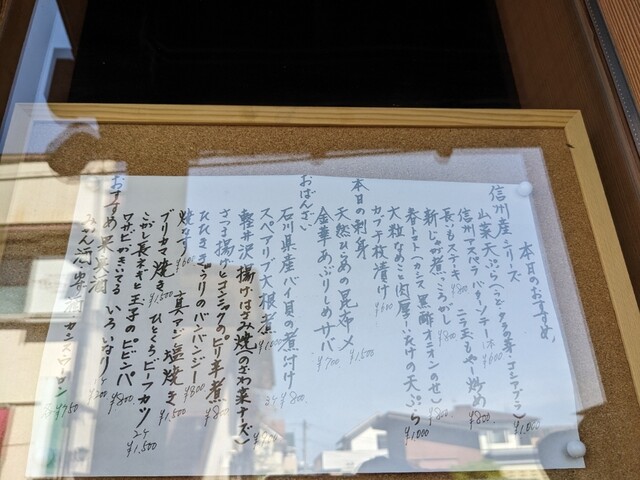 本日のおすすめ
信州産シリーズ
山菜天ぷら(こごみ タラの芽 コシアブラ) ¥1,000
信州アスパラ バターソテー 1本 ¥600
長いもステキ ¥800
新じゃが煮ころがし ¥800
春トマト(カシス黒酢オニオンのせ) ¥800
大粒なめこと肉厚しいたけの天ぷら ¥1,000
カブ千枚漬け ¥600
本日の刺身
天然ひらめの昆布〆 ¥1,500
金華あぶりしめサバ ¥700
おばんざい
石川県産バイ貝の煮付け 2ケ ¥800
スペアリブ大根煮
軽井沢揚げはさみ焼(のざわ菜チーズ)
さつま揚げとコンニャクのピリ辛煮 ¥800
ひびききゅうりのバンバンジー ¥800
焼なす ¥600
真アジ塩焼き ¥1,500
ブリカマ焼き ¥1,500
ひとくちビーフカツ 2ケ ¥1,500
こがし長ネギと玉子のビビンバ ¥800
ワサビがきいてる いろいなり 1ケ ¥200
おすすめ果実酒